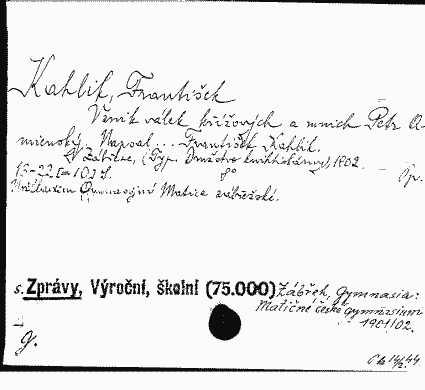 Kahlik, František
Vznik válek křížových a mnich Petr A-
mienský. Napsal... František Kahlik.
V Zábřeze, (Typ. Družstvo knihtiskárny) 1902.
13-22 [=10] s. 8°
Gymnasijní Matice zábřežské.
s. Zprávy, Výroční, školní (75.000) Zábřeh, Gymnasia:
Matičné české gymnasium
1901/02.
g.